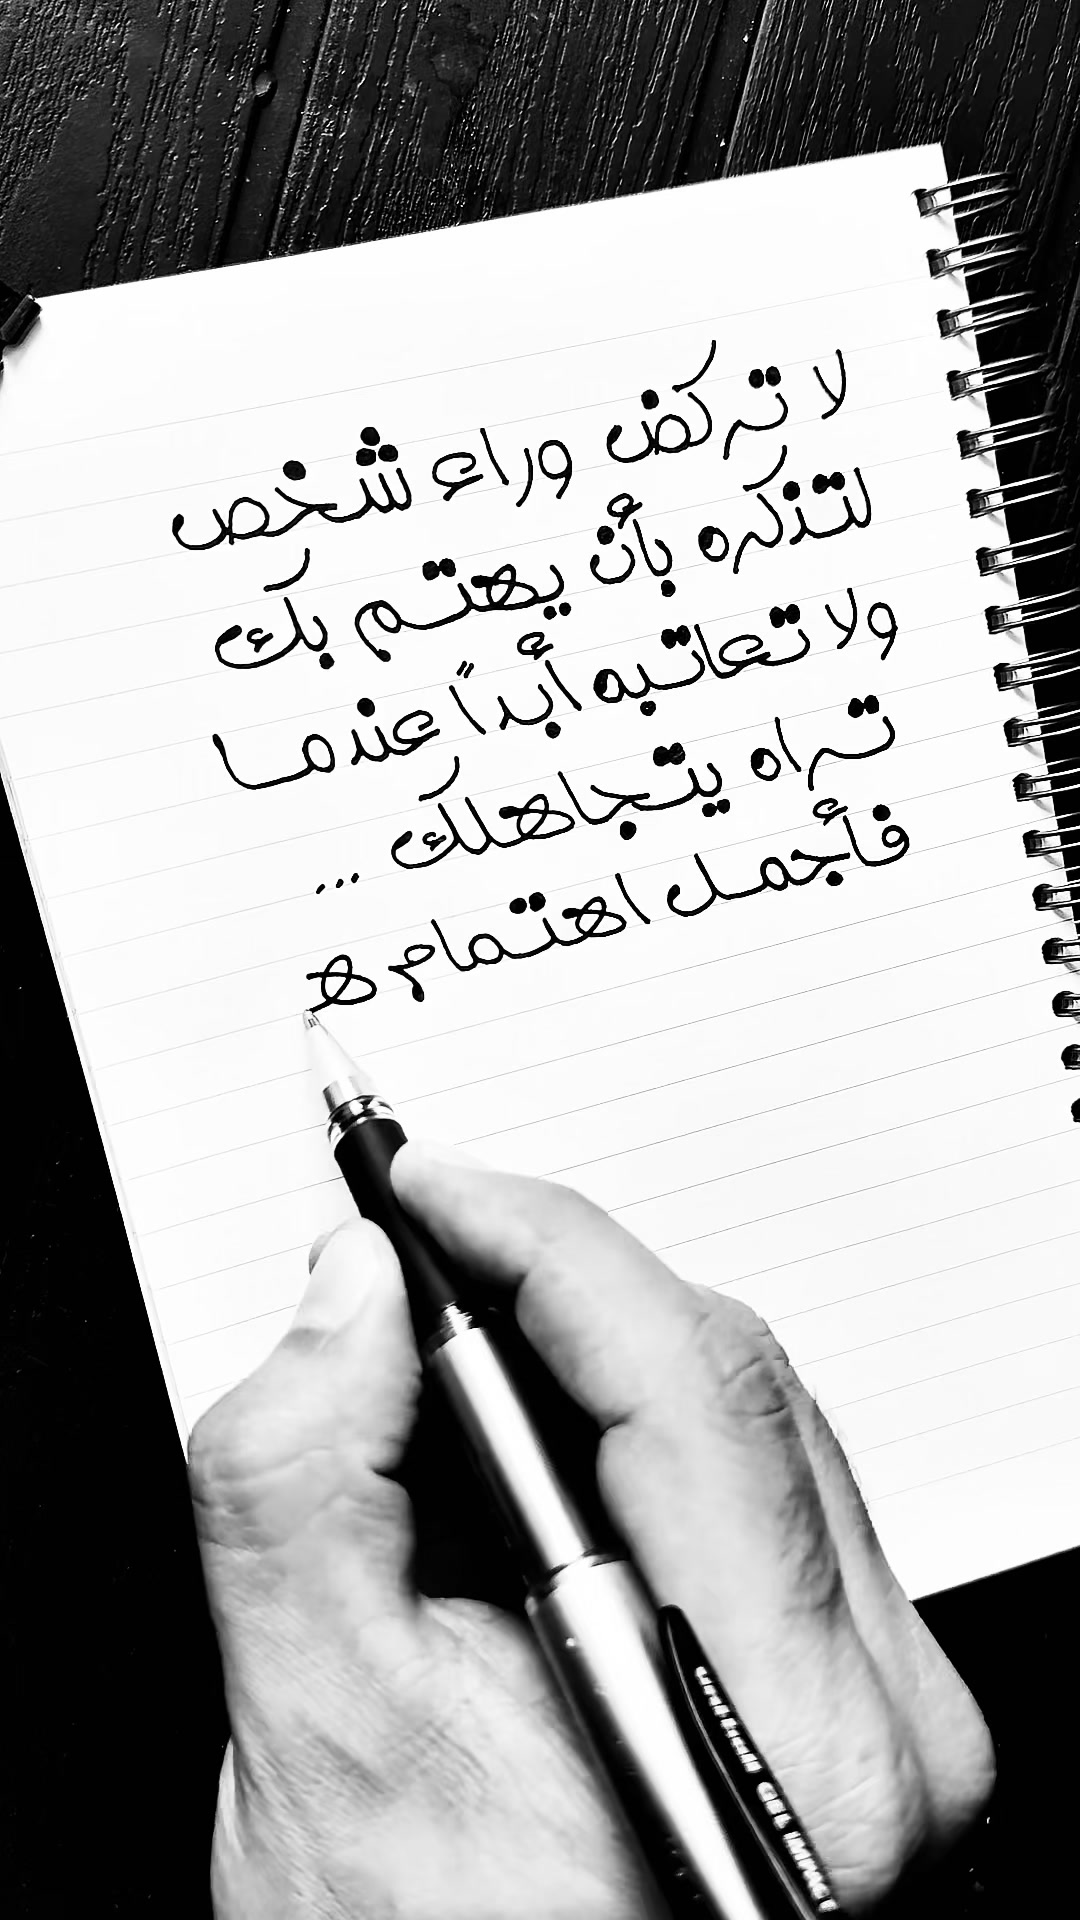 لا تركض وراء شخص
لتذكره بأن يهتم بك
ولا تعاتبه أبداً عندما
تراه يتجاهلك ...
فأجمل اهتمام هـ
uni-ball GEL IMPACT